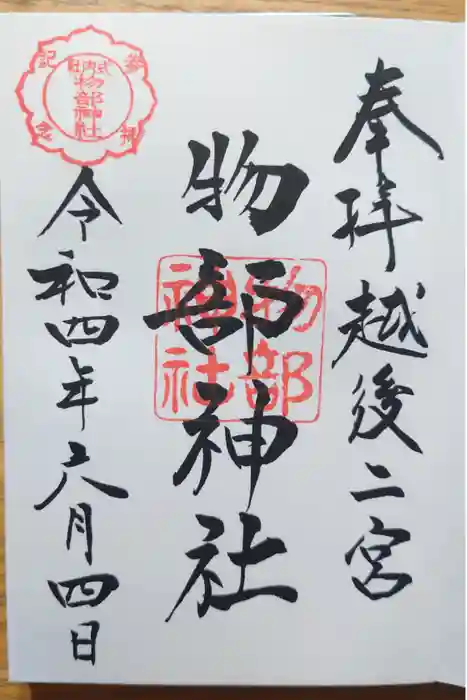 奉拝 越後二宮
物部神社
物部
神社
令和四年六月四日
参拝
記念
式内社
物部神社